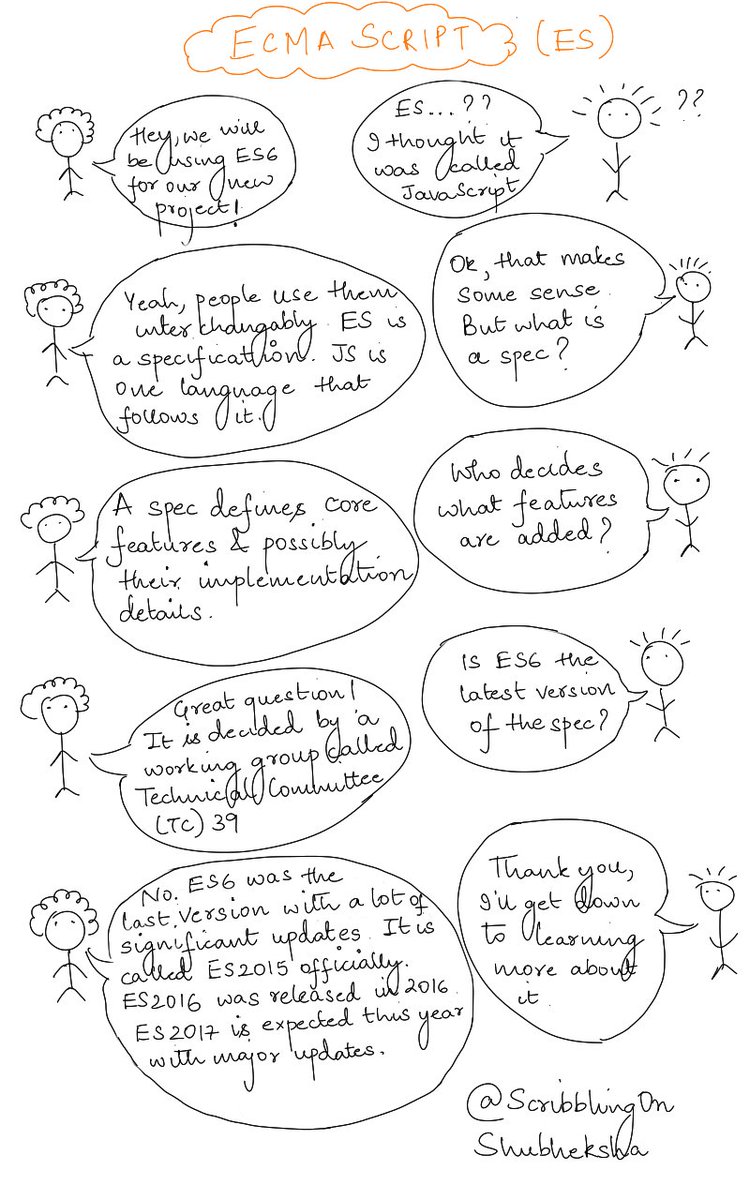 ECMA SCRIPT (ES)
Hey, we will
be using ES6
for our new
project!
ES...??
I thought it
was called
JavaScript
??
Yeah, people use them
inter changably. ES is
a specification. JS is
one language that
follows it.
Ok, that makes
some sense.
But what is
a spec?
A spec defines core
features & possibly
their implementation
details.
Who decides
what features
are added?
Great question!
It is decided by a
working group called
Technical Committee
(TC) 39
Is ES6 the
latest version
of the spec?
No. ES6 was the
last version with a lot of
significant updates. It is
called ES2015 officially.
ES2016 was released in 2016.
ES2017 is expected this year
with major updates.
Thank you,
I'll get down
to learning
more about
it.
@ScribblingOn
Shubheksha